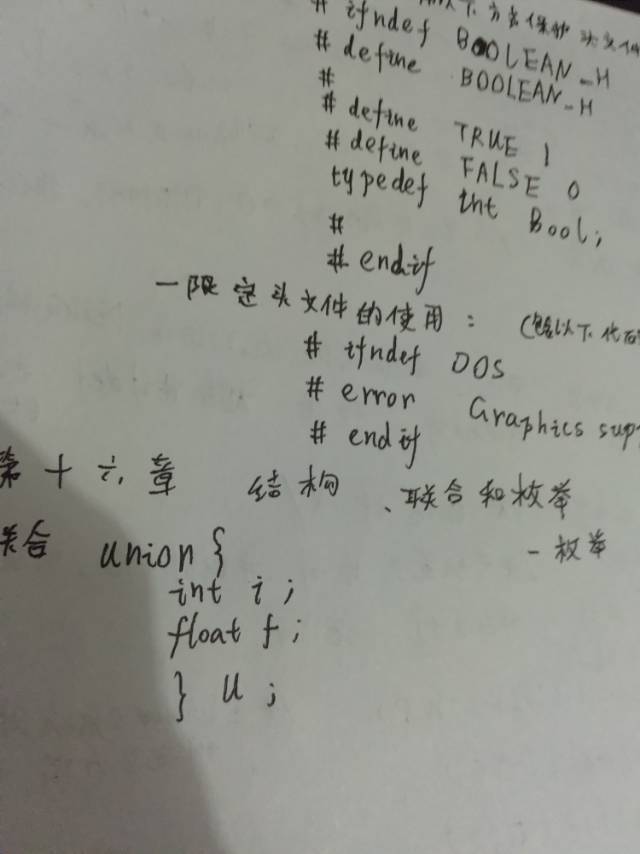 以下方式保护头文件
# ifndef BOOLEAN_H
# define BOOLEAN_H
#
# define TRUE 1
# define FALSE 0
typedef int Bool;
#
# endif
一限定头文件的使用: (包含以下代码
# ifndef DOS
# error Graphics sup
# endif
第十六章 结构、联合和枚举
联合 union {
一枚举
int i;
float f;
} u;